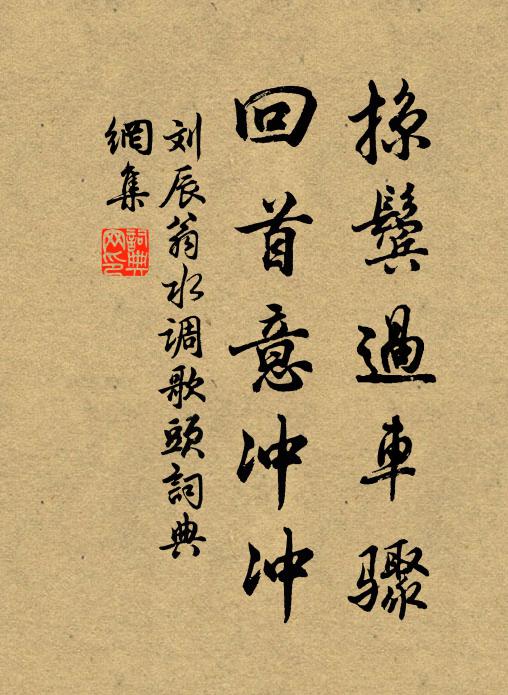 掠鬓過車驟
回首意冲冲
刘辰翁水调歌頭詞典
網集
詞典
网印